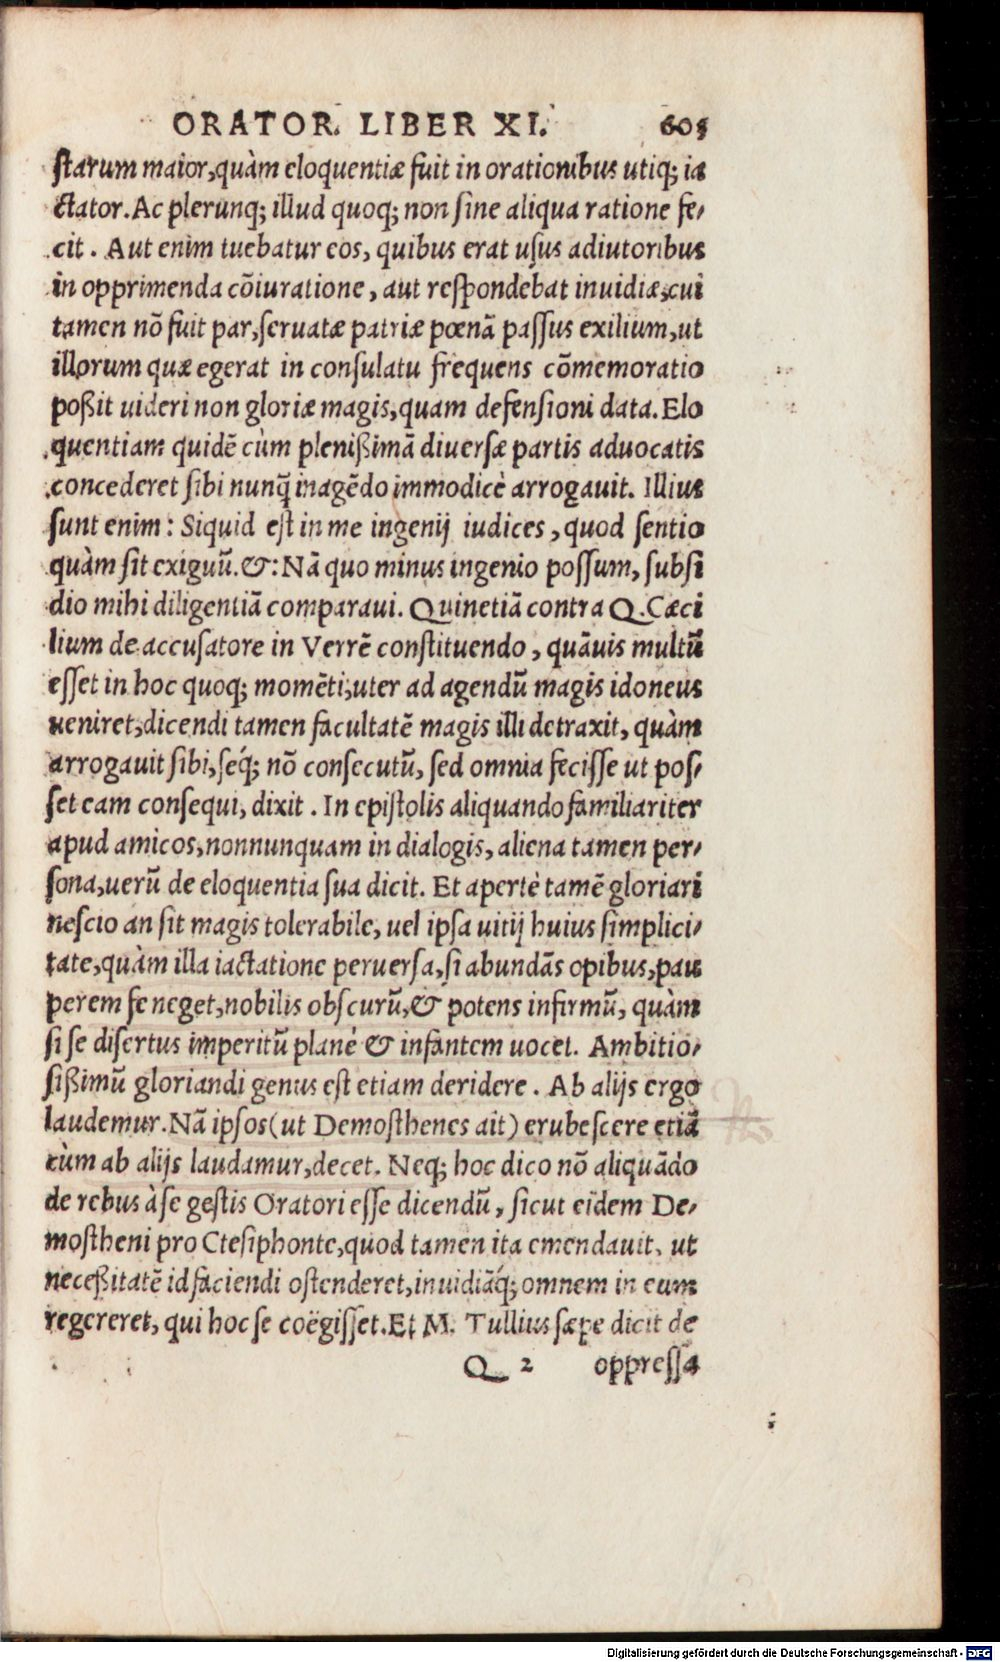 ORATOR. LIBER XI. 605
ſtarum maior, quàm eloquentiæ fuit in orationibus utiq; ia
ctator. Ac plerunq; illud quoq; non ſine aliqua ratione fe-
cit. Aut enim tuebatur eos, quibus erat uſus adiutoribus
in opprimenda cõiuratione, aut reſpondebat inuidiæ, cui
tamen nõ fuit par, ſeruatæ patriæ pœnã paſſus exilium, ut
illorum quæ egerat in conſulatu frequens cõmemoratio
poßit uideri non gloriæ magis, quam defenſioni data. Elo
quentiam quidẽ cùm plenißimã diuerſæ partis aduocatis
concederet ſibi nunq̃ in agẽdo immodicè arrogauit. Illius
ſunt enim: Siquid eſt in me ingenij iudices, quod ſentio
quàm ſit exiguũ. &: Nã quo minus ingenio poſſum, ſubſi
dio mihi diligentiã comparaui. Quinetiã contra Q. Cæci
lium de accuſatore in Verrẽ conſtituendo, quãuis multũ
eſſet in hoc quoq; momẽti, uter ad agendũ magis idoneus
ueniret, dicendi tamen facultatẽ magis illi detraxit, quàm
arrogauit ſibi, ſéq; nõ conſecutũ, ſed omnia feciſſe ut poſ-
ſet eam conſequi, dixit. In epiſtolis aliquando familiariter
apud amicos, nonnunquam in dialogis, aliena tamen per-
ſona, uerũ de eloquentia ſua dicit. Et apertè tamẽ gloriari
neſcio an ſit magis tolerabile, uel ipſa uitij huius ſimplici-
tate, quàm illa iactatione peruerſa, ſi abundãs opibus, pau
perem ſe neget, nobilis obſcurũ, & potens infirmũ, quàm
ſi ſe diſertus imperitũ planè & infantem uocet. Ambitio-
ſißimũ gloriandi genus eſt etiam deridere. Ab alijs ergo
laudemur. Nã ipſos (ut Demoſthenes ait) erubeſcere etiã
cùm ab alijs laudamur, decet. Neq; hoc dico nõ aliquãdo
de rebus à ſe geſtis Oratori eſſe dicendũ, ſicut eidem De-
moſtheni pro Cteſiphonte, quod tamen ita emendauit, ut
neceßitatẽ id faciendi oſtenderet, inuidiãq́; omnem in eum
regereret, qui hoc ſe coëgiſſet. Et M. Tullius ſæpe dicit de
Q 2 oppreſſa
Digitalisierung gefördert durch die Deutsche Forschungsgemeinschaft - DFG